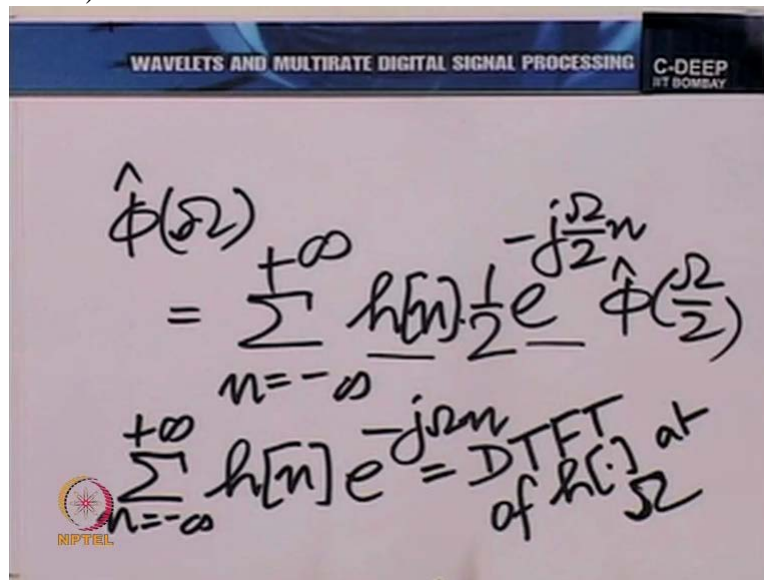 WAVELETS AND MULTIRATE DIGITAL SIGNAL PROCESSING
C-DEEP
IIT BOMBAY
Φ̂(Ω)
= Σ_{n=-∞}^{+∞} h[n]·½ e^{-jΩ/2 n} Φ̂(Ω/2)
Σ_{n=-∞}^{+∞} h[n] e^{-jΩn} = DTFT of h[·] at Ω
NPTEL